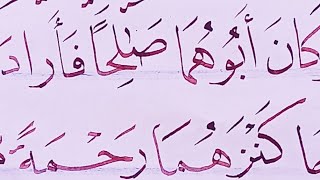 كَانَ أَبُوهُمَا صَالِحًا فَأَرَادَ
كَنْزَهُمَا رَحْمَةً